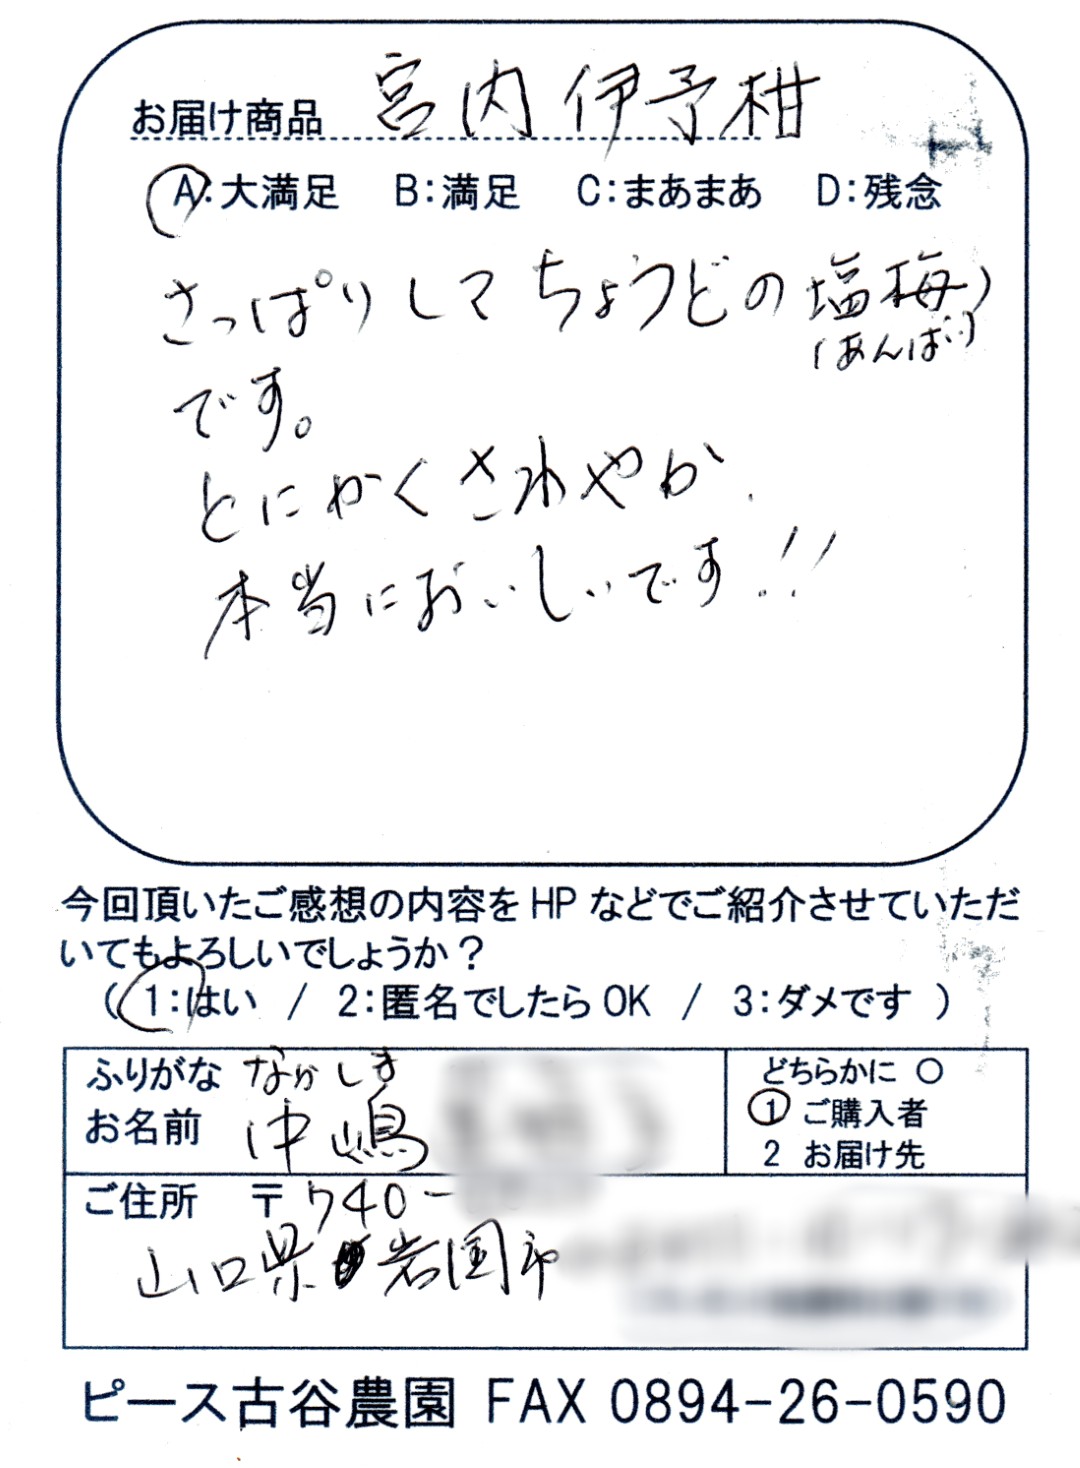 お届け商品 宮内伊予柑
A:大満足 B:満足 C:まあまあ D:残念
さっぱりしてちょうどの塩梅
(あんばい)
です。
とにかくさわやか
本当においしいです!!
今回頂いたご感想の内容をHPなどでご紹介させていただ
いてもよろしいでしょうか?
( 1:はい / 2:匿名でしたらOK / 3:ダメです )
ふりがな なかしま
お名前 中嶋
どちらかに ○
1 ご購入者
2 お届け先
ご住所 〒740-
山口県岩国市
ピース古谷農園 FAX 0894-26-0590